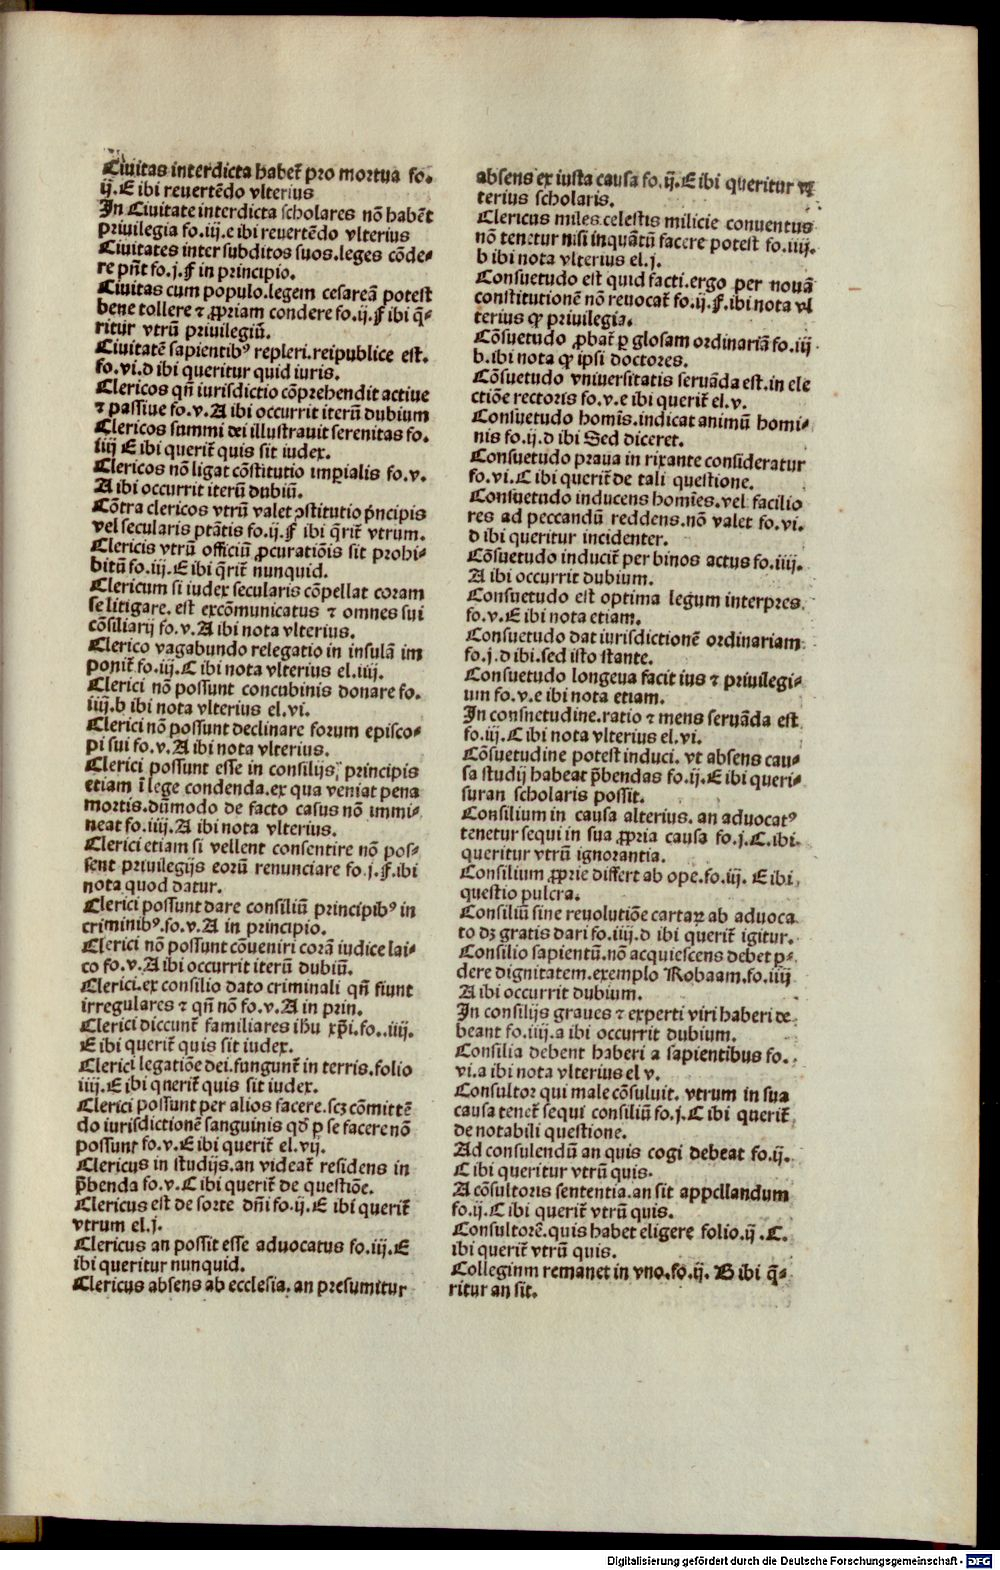 Ciuitas interdicta habet᷑ pro mortua fo.
ij. E ibi reuertēdo vlterius
In Ciuitate interdicta scholares nō habēt
priuilegia fo. iij. e ibi reuertēdo vlterius
Ciuitates inter subditos suos. leges cōde⸗
re pñt fo. j. F in principio.
Ciuitas cum populo. legem cesareā potest
bene tollere ⁊ ꝓpriam condere fo. ij. F ibi q̄⸗
ritur vtrū priuilegiū.
Ciuitatē sapientibꝰ repleri. reipublice est.
fo. vi. d ibi queritur quid iuris.
Clericos qñ iurisdictio cōprehendit actiue
⁊ passiue fo. v. A ibi occurrit iterū dubium
Clericos summi dei illustrauit serenitas fo.
iiij E ibi querit᷑ quis sit iudex.
Clericos nō ligat cōstitutio imꝑialis fo. v.
A ibi occurrit iterū dubiū.
Cōtra clericos vtrū valet ꝯstitutio pͥncipis
vel secularis ptātis fo. ij. F ibi q̄rit᷑ vtrum.
Clericis vtrū officiū ꝓcuratiōis sit prohi⸗
bitū fo. iij. E ibi q̄rit᷑ nunquid.
Clericum si iudex secularis cōpellat coram
se litigare. est excōmunicatus ⁊ omnes sui
cōsiliarij fo. v. A ibi nota vlterius.
Clerico vagabundo relegatio in insulā im
ponit᷑ fo. iij. C ibi nota vlterius el. iiij.
Clerici nō possunt concubinis donare fo.
iiij. b ibi nota vlterius el. vi.
Clerici nō possunt declinare forum episco⸗
pi sui fo. v. A ibi nota vlterius.
Clerici possunt esse in consilijs, principis
etiam ī lege condenda. ex qua veniat pena
mortis. dūmodo de facto casus nō immi⸗
neat fo. iiij. A ibi nota vlterius.
Clerici etiam si vellent consentire nō pos⸗
sent priuilegijs eorū renunciare fo. j. F. ibi
nota quod datur.
Clerici possunt dare consiliū principibꝰ in
criminibꝰ. fo. v. A in principio.
Clerici nō possunt cōueniri corā iudice lai⸗
co fo. v. A ibi occurrit iterū dubiū.
Clerici. ex consilio dato criminali qñ fiunt
irregulares ⁊ qñ nō fo. v. A in prin.
Clerici diccunt᷑ familiares ihu xp̄i. fo. .iiij.
E ibi querit᷑ quis sit iudex.
Clerici legatiōe dei. fungunt᷑ in terris. folio
iiij. E ibi qnerit᷑ quis sit iudex.
Clerici possunt per alios facere. scꝫ cōmittē
do iurisdictionē sanguinis qd̓ ꝑ se facere nō
possunt fo. v. E ibi querit᷑ el. vij.
Clericus in studijs. an videat᷑ residens in
p̄benda fo. v. C ibi querit᷑ de questiōe.
Clericus est de sorte dñi fo. ij. E ibi querit᷑
vtrum el. j.
Clericus an possit esse aduocatus fo. iij. E
ibi queritur nunquid.
Clericus absens ab ecclesia. an presumitur
absens ex iusta causa fo. ij. E ibi queritur vl
terius scholaris.
Clericus miles. celestis milicie conuentus
nō tenetur nisi inquātū facere potest fo. iiij.
b ibi nota vlterius el. j.
Consuetudo est quid facti. ergo per nouā
constitutionē nō reuocat᷑ fo. ij. F. ibi nota vl
terius ꝙ priuilegia.
Cōsuetudo ꝓbat᷑ ꝑ glosam ordinariā fo. iij
b. ibi nota ꝙ ipsi doctores.
Cōsuetudo vniuersitatis seruāda est. in ele
ctiōe rectoris fo. v. e ibi querit᷑ el. v.
Consuetudo homīs. indicat animū homi⸗
nis fo. ij. d ibi Sed diceret.
Consuetudo praua in rixante consideratur
fo. vi. C ibi querit᷑ de tali questione.
Consuetudo inducens homīes. vel facilio
res ad peccandū reddens. nō valet fo. vi.
d ibi queritur incidenter.
Cōsuetudo inducit᷑ per binos actus fo. iiij.
A ibi occurrit dubium.
Consuetudo est optima legum interpres
fo. v. E ibi nota etiam.
Consuetudo dat iurisdictionē ordinariam
fo. j. d ibi. sed isto stante.
Consuetudo longeua facit ius ⁊ priuilegi⸗
um fo. v. e ibi nota etiam.
In consnetudine. ratio ⁊ mens seruāda est
fo. iij. C ibi nota vlterius el. vi.
Cōsuetudine potest induci. vt absens cau⸗
sa studij habeat p̄bendas fo. ij. E ibi queri⸗
suran scholaris possit.
Consilium in causa alterius. an aduocatꝰ
tenetur sequi in sua ꝓpria causa fo. j. C. ibi
queritur vtrū ignorantia.
Consilium ꝓprie differt ab ope. fo. iij. E ibi
questio pulcra.
Consiliū sine reuolutiōe cartaꝝ ab aduoca
to dꝫ gratis dari fo. iiij. d ibi querit᷑ igitur.
Consilio sapientū. nō acquiescens debet ꝑ⸗
dere dignitatem. exemplo Robaam. fo. iiij
A ibi occurrit dubium.
In consilijs graues ⁊ experti viri haberi de⸗
beant fo. iiij. a ibi occurrit dubium.
Consilia debent haberi a sapientibus fo.
vi. a ibi nota vlterius el v.
Consultor qui male cōsuluit. vtrum in sua
causa tenet᷑ sequi consiliū fo. j. C ibi querit᷑
de notabili questione.
Ad consulendū an quis cogi debeat fo. ij.
C ibi queritur vtrū quis.
A cōsultoris sententia. an sit appellandum
fo. ij. C ibi queritur vtrū quis.
Consultorē. quis habet eligere folio. ij. C.
ibi querit᷑ vtrū quis.
Collegium remanet in vno. fo. ij. B ibi q̄⸗
ritur an sit.
Digitalisierung gefördert durch die Deutsche Forschungsgemeinschaft - DFG